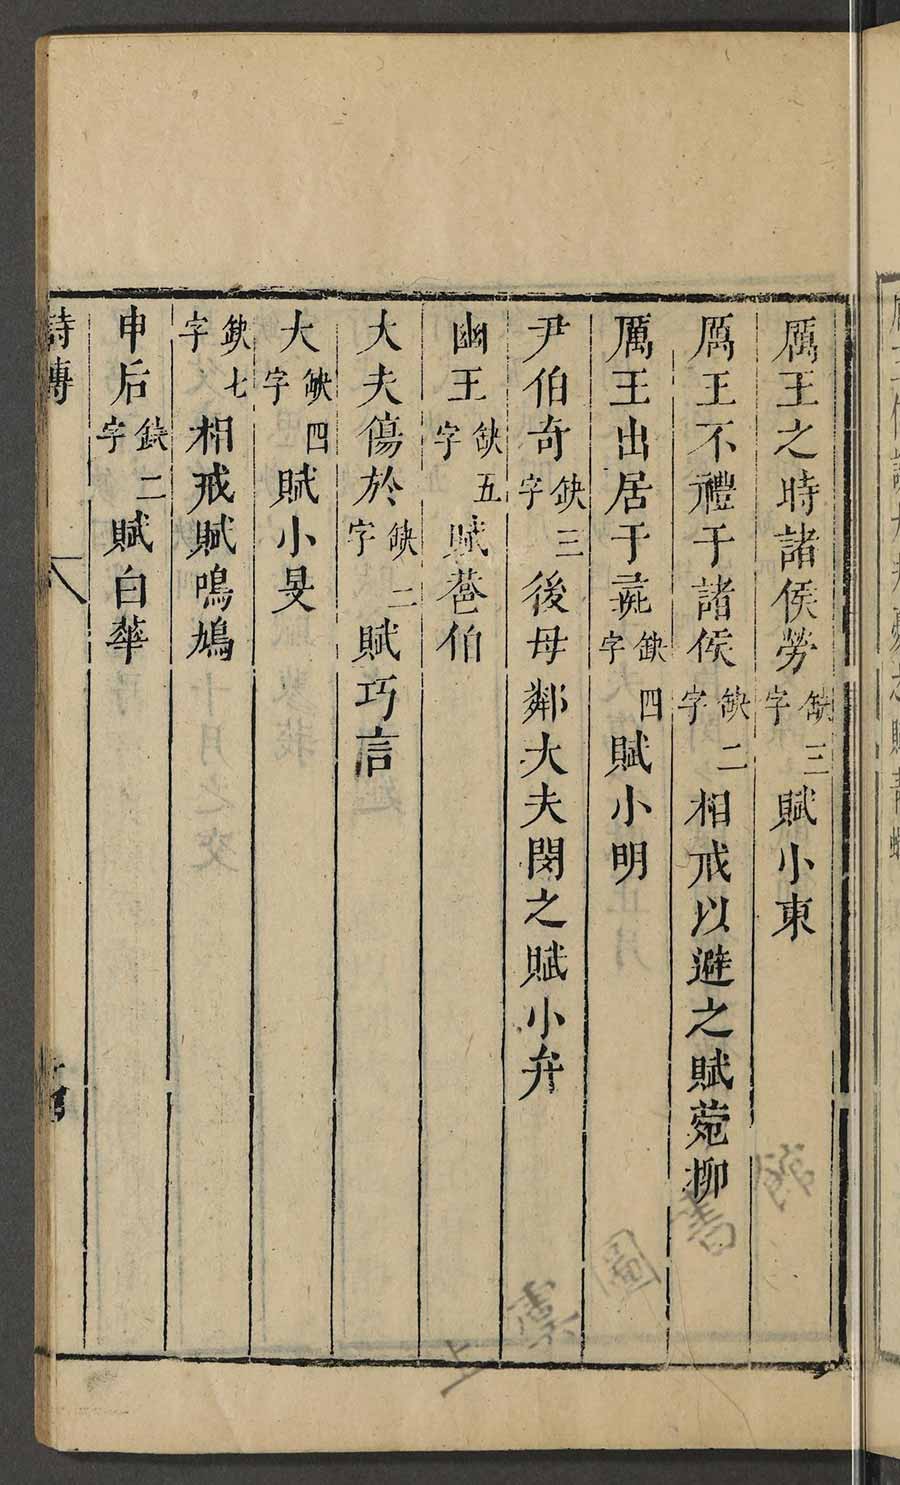 厲王之時諸侯勞缺三字賦小東
厲王不禮于諸侯缺二字相戒以避之賦菀柳
厲王出居于彘缺四字賦小明
尹伯奇缺三字後母鄰大夫閔之賦小弁
幽王缺五字賦巷伯
大夫傷於缺二字賦巧言
大缺四字賦小旻
缺七字相戒賦鳴鳩
申后缺二字賦白華
詩傳 八
上 圖 書